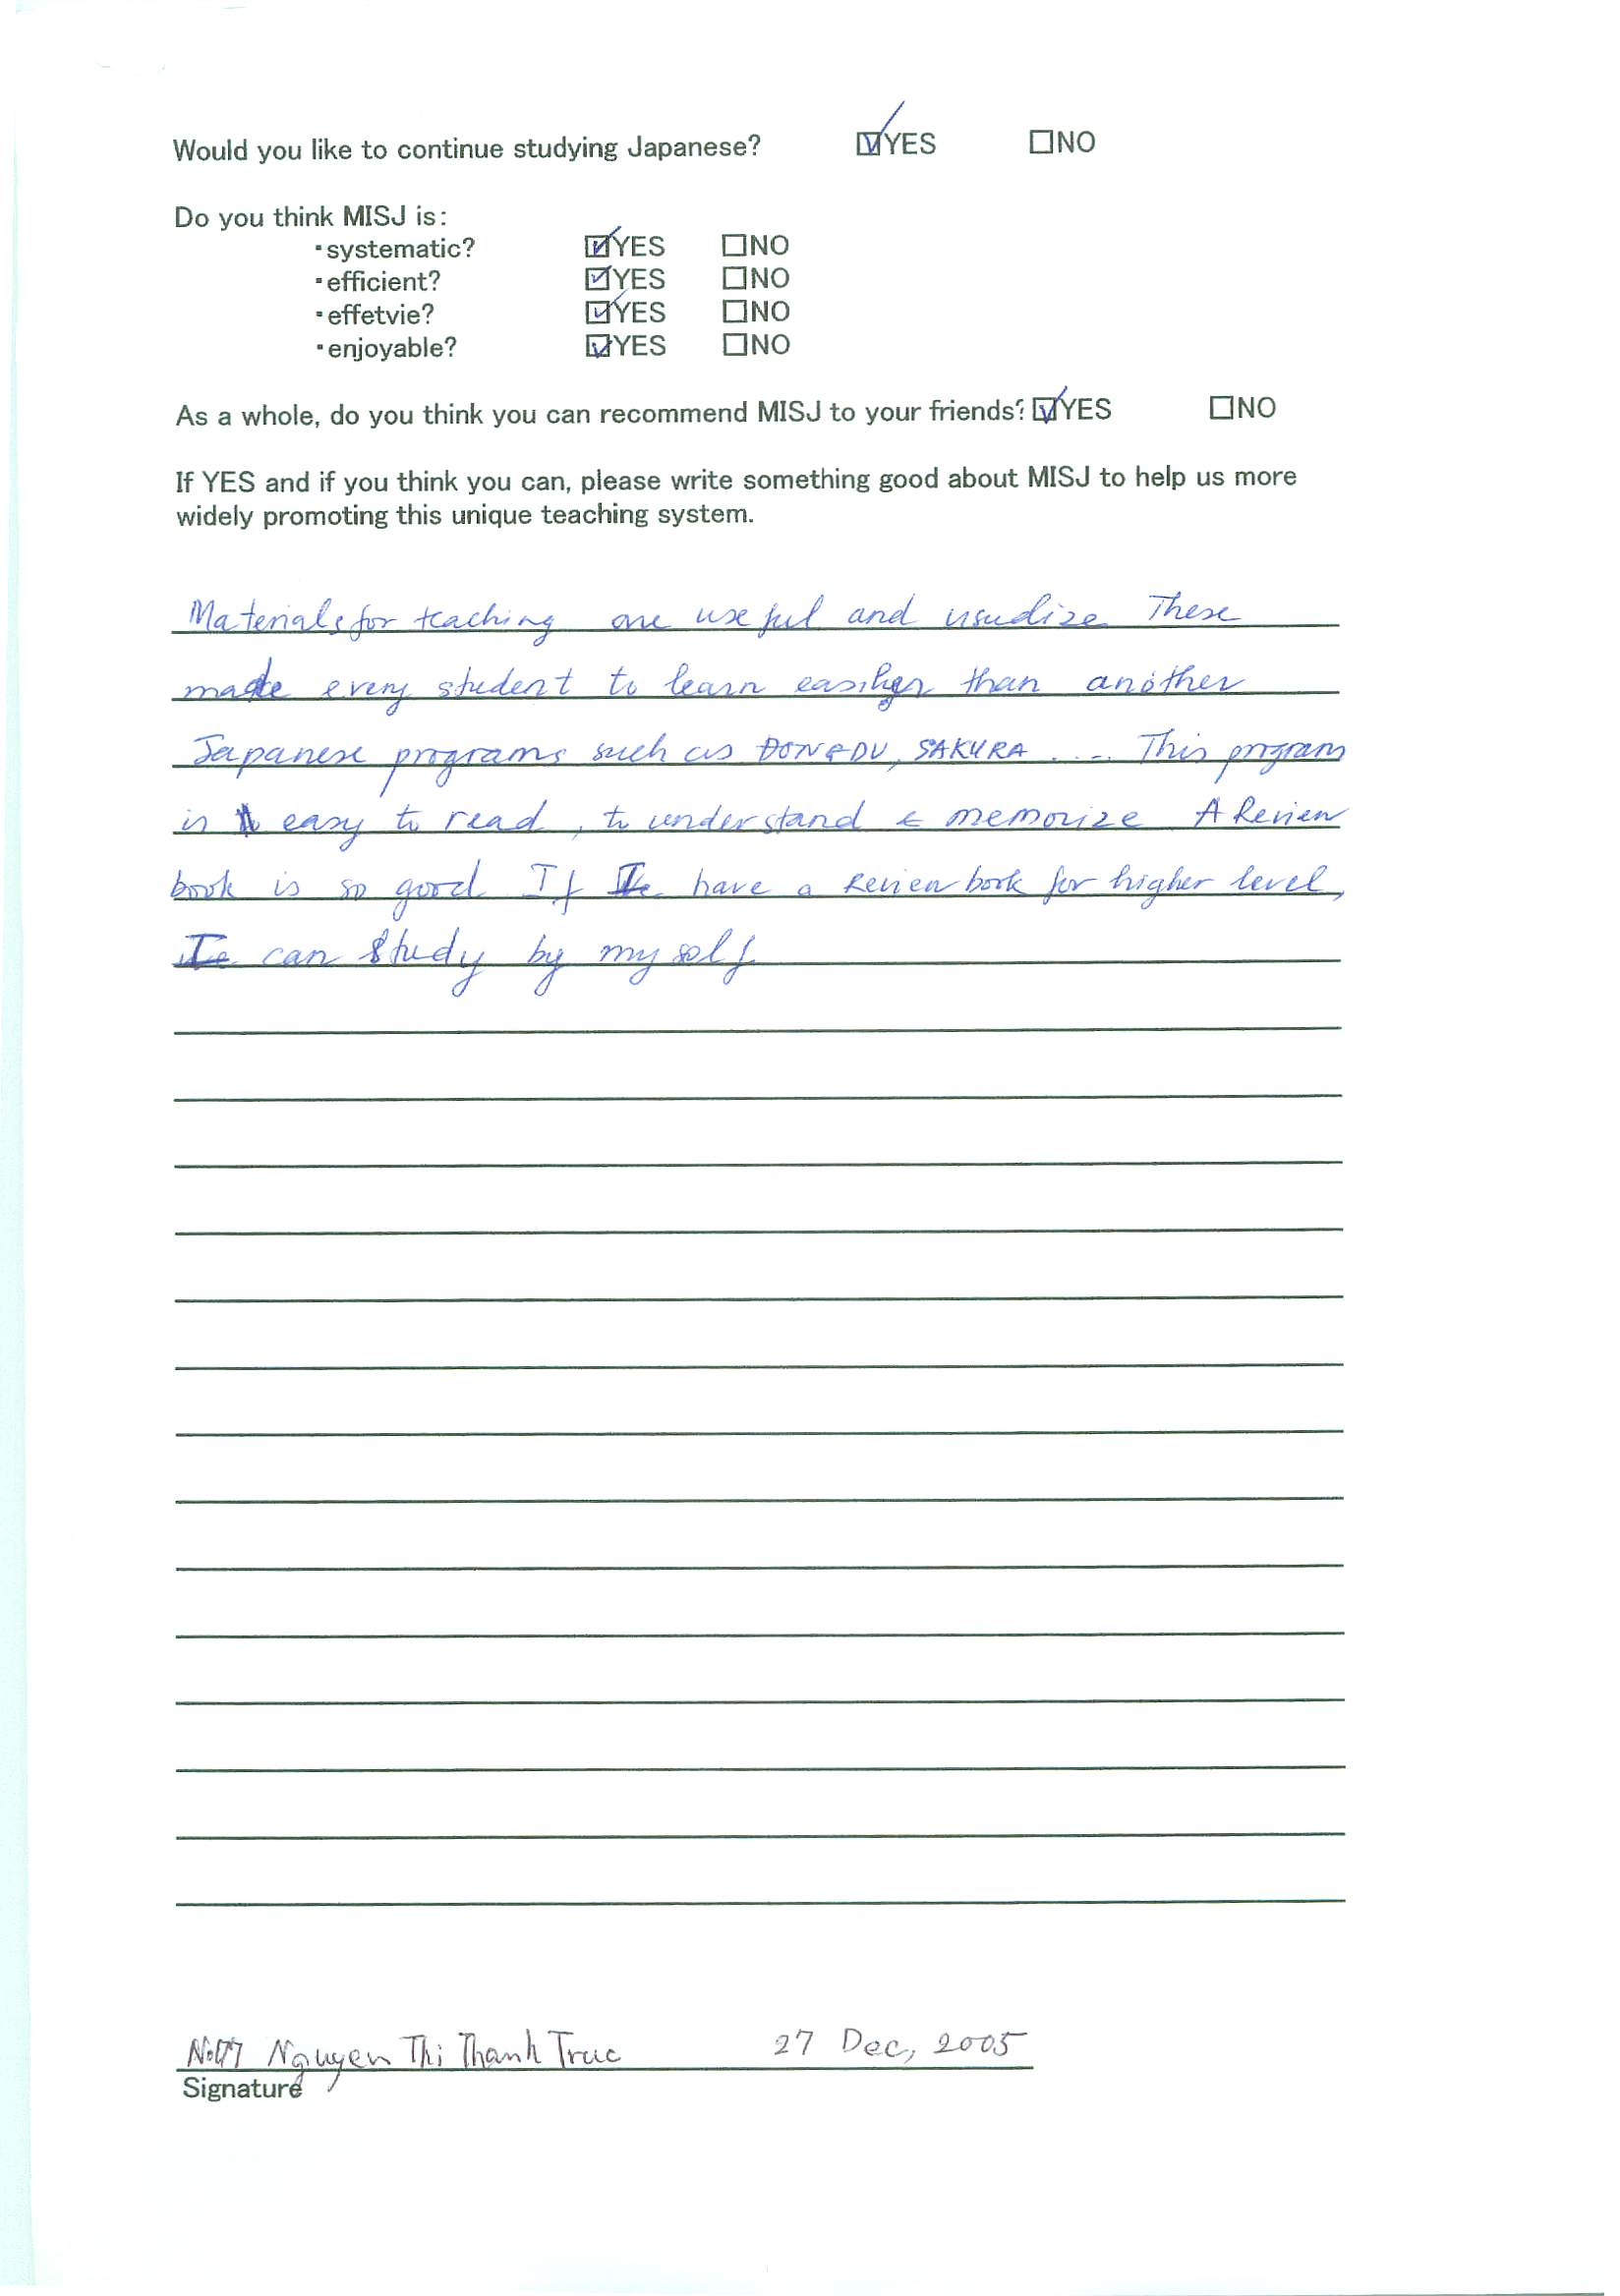 Would you like to continue studying Japanese? ☑YES ☐NO
Do you think MISJ is:
・systematic? ☑YES ☐NO
・efficient? ☑YES ☐NO
・effetvie? ☑YES ☐NO
・enjoyable? ☑YES ☐NO
As a whole, do you think you can recommend MISJ to your friends? ☑YES ☐NO
If YES and if you think you can, please write something good about MISJ to help us more
widely promoting this unique teaching system.
Materials for teaching are useful and visualize These
made every student to learn than another
Japanese programs such as DONGDU, SAKURA .... This program
is easy to read, to understand & memorize A Review
book is so good If I have a Review book for higher level,
I can study by my self.
Nguyen Thi Thanh Truc 27 Dec, 2005
Signature